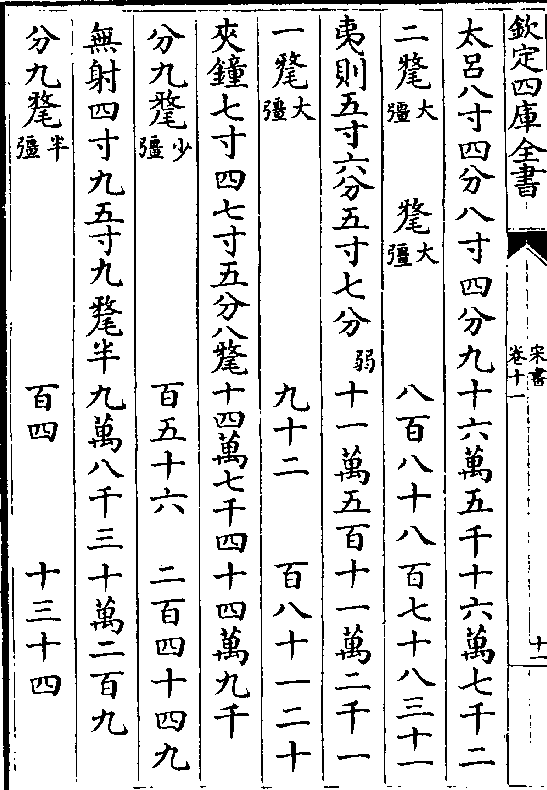 欽定四庫全書 宋書卷十一 十二
太呂八寸四分八寸四分九十六萬五千十六萬七千二
二氂大彊 氂大彊 八百八十八百七十八三十一
夷則五寸六分五寸七分弱十一萬五百十一萬二千一
一氂大彊 九十二 百八十一二十
夾鐘七寸四七寸五分八氂十四萬七千四十四萬九千
分九氂少彊 百五十六 二百四十四九
無射四寸九五寸九氂半九萬八千三十萬二百九
分九氂半彊 百四 十三十四